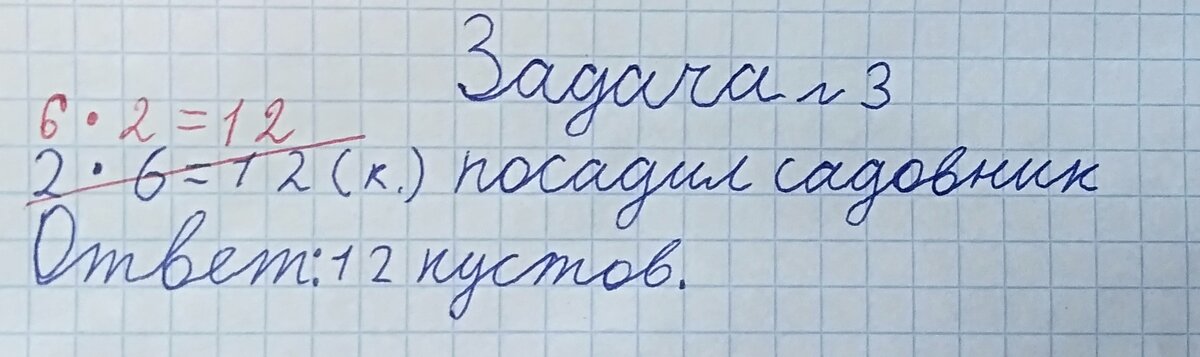 Задача ~ 3
6 · 2 = 12
2 · 6 = 12 (к.) посадил садовник
Ответ: 12 кустов.